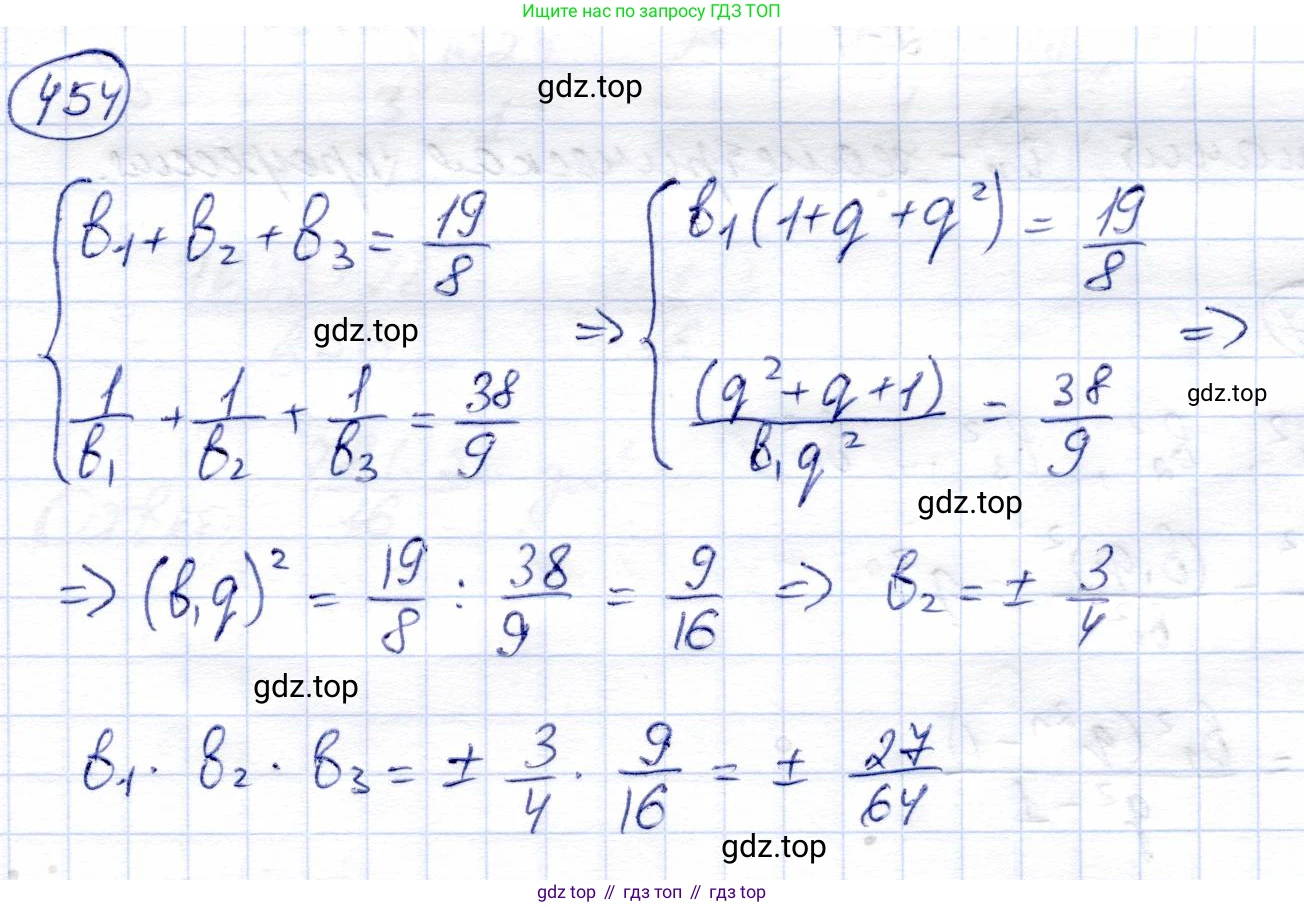 Ищите нас по запросу ГДЗ ТОП
454
gdz.top
b₁ + b₂ + b₃ = 19/8 => b₁(1+q+q²) = 19/8 =>
gdz.top
1/b₁ + 1/b₂ + 1/b₃ = 38/9 (q²+q+1)/(b₁q²) = 38/9
gdz.top
gdz.top
=> (b₁q)² = 19/8 : 38/9 = 9/16 => b₂ = ± 3/4
gdz.top
b₁ · b₂ · b₃ = ± 3/4 · 9/16 = ± 27/64
gdz.top
gdz top // гдз топ // гдз top